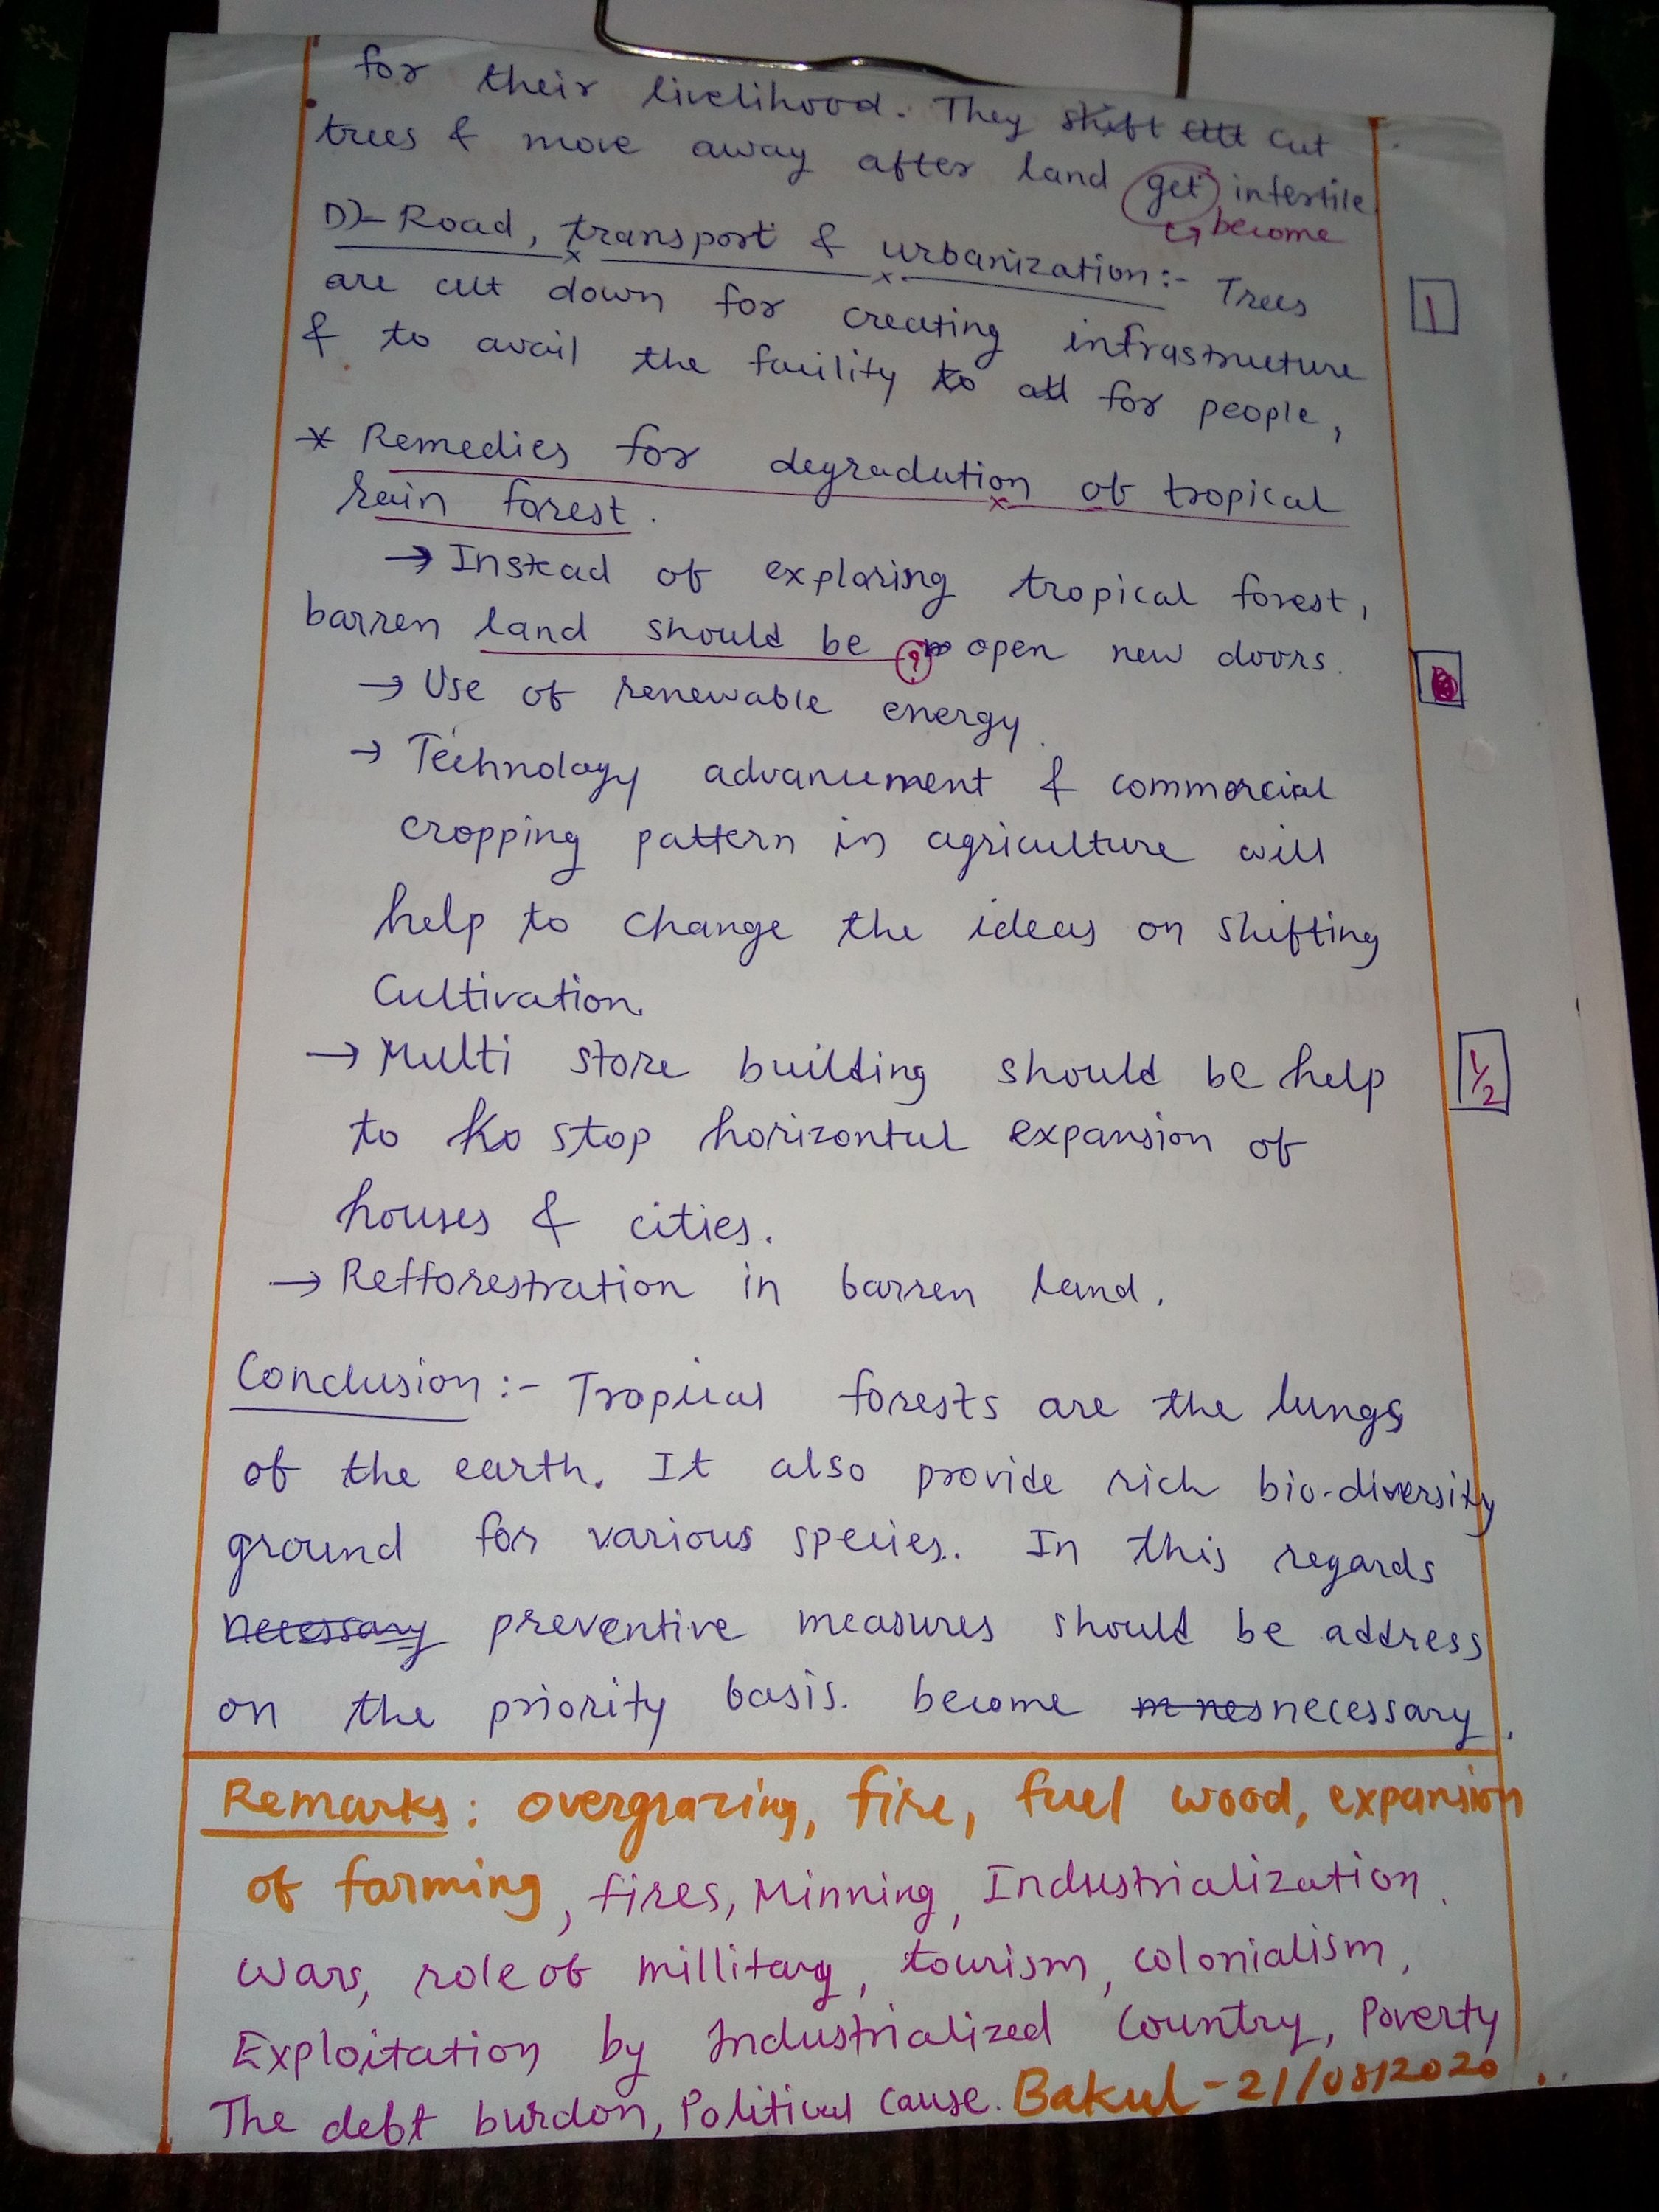 for their livelihood. They shift cut cut
trees & move away after land get infertile
become
D)- Road, transport & urbanization:- Trees
1
are cut down for creating infrastructure
& to avail the facility to all for people,
* Remedies for degradation of tropical
rain forest.
→ Instead of exploring tropical forest,
barren land should be ? open new doors.
→ Use of renewable energy.
→ Technology advancement & commercial
cropping pattern in agriculture will
help to change the ideas on shifting
Cultivation.
→ Multi store building should be help
1/2
to Ko stop horizontal expansion of
houses & cities.
→ Refforestration in barren land.
Conclusion :- Tropical forests are the lungs
of the earth. It also provide rich bio-diversity
ground for various species. In this regards
necessary preventive measures should be address
on the priority basis. become m nes necessary.
Remarks: overgrazing, fire, fuel wood, expansion
of farming, fires, Minning, Industrialization.
Wars, role of millitary, tourism, colonialism,
Exploitation by Industrialized Country, Poverty
The debt burdon, Political cause. Bakul - 21/08/2020